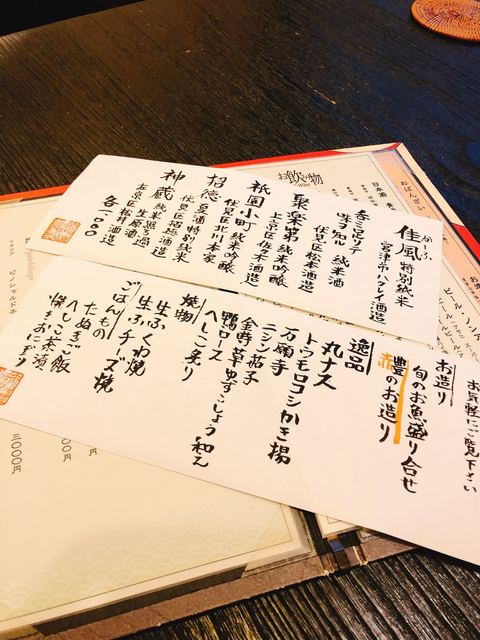 お飲物
日本酒
おばんざい
ビール
佳風 特別純米
かーふ
宮津市 ハクレイ酒造
香ニ足リテ
味ヲ知ル 純米酒
伏見区 松本酒造
聚楽第 純米吟醸
上京区 佐々木酒造
祇園小町 純米吟醸
伏見区 北川本家
招徳 夏酒 特別純米
伏見区 招徳酒造
神蔵 純米無濾過
生原酒
左京区 松井酒造
各一、〇〇〇
お気軽にご覧下さい
お造り
旬のお魚盛り合せ
赤豊のお造り
逸品
丸ナス
トウモロコシかき揚
万願寺
ニシン茄子
金時草ゆずこしょう和え
鴨ロース
へしこ炙り
焼物
生ふくわ焼
生ふチーズ焼
ごはんもの
たぬきご飯
へしこ茶漬
焼きおにぎり
ピノシャルドネ
三〇〇〇円